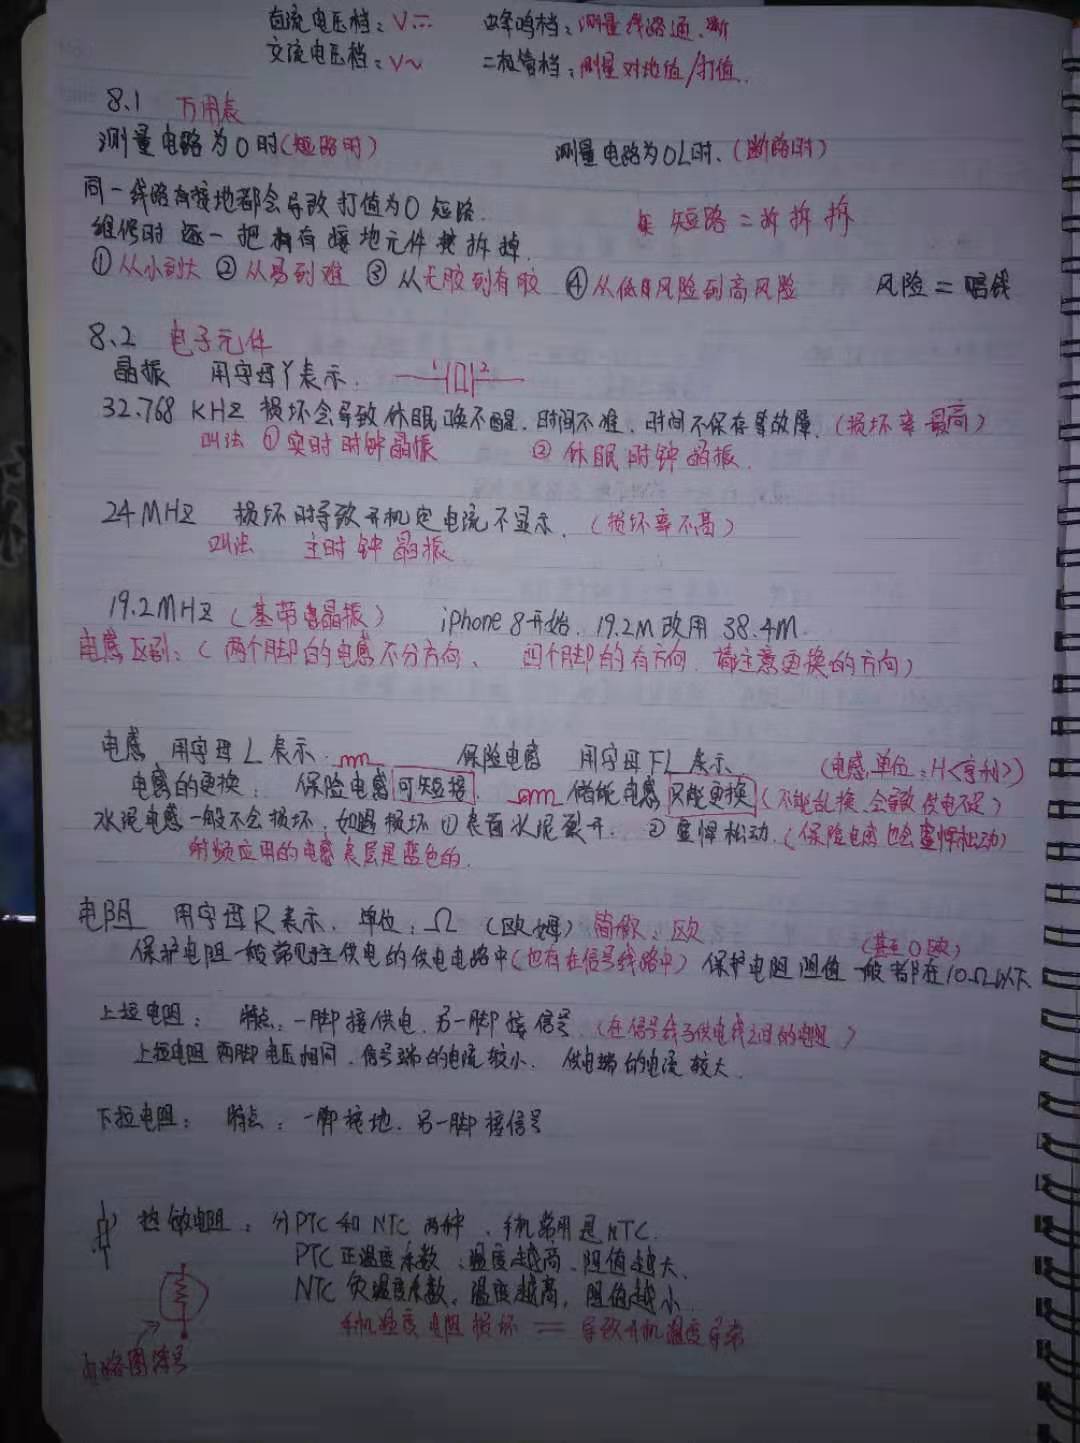 直流电压档：V⎓ 蜂鸣档：测量线路通、断
交流电压档：V～ 二极管档：测量对地值/打值.
8.1 万用表
测量电路为0时(短路时) 测量电路为OL时、(断路时)
同一线路有接地都会导致打值为0 短路.
短路＝拆拆拆
维修时 逐一把所有接地元件 拆掉.
①从小到大 ②从易到难 ③从无胶到有胶 ④从低风险到高风险 风险＝赔钱
8.2 电子元件
晶振 用字母Y表示. 1 2
32.768 KHZ 损坏会导致休眠唤不醒、时间不准、时间不保存等故障、(损坏率最高)
叫法 ①实时时钟晶振 ②休眠时钟晶振.
24MHZ 损坏时导致开机定电流不显示、(损坏率不高)
叫法 主时钟晶振
19.2MHZ (基带晶振) iPhone 8开始、19.2M改用 38.4M.
电感区别：( 两个脚的电感不分方向、 四个脚的有方向、请注意更换的方向)
电感 用字母L表示. 保险电感 用字母FL表示 (电感单位：H<亨利>)
电感的更换： 保险电感可短接. 储能电感只能更换(不能乱换、会导致供电不足)
水泥电感一般不会损坏、如遇损坏①表面水泥裂开. ②虚焊松动.(保险电感也会虚焊松动)
射频应用的电感表层是蓝色的.
电阻 用字母R表示、单位：Ω (欧姆) 简称：欧
(甚至0欧)
保护电阻一般常见于主供电的供电电路中(也存在信号线路中) 保护电阻阻值一般都在10Ω以下
上拉电阻： 特点：一脚接供电、另一脚接信号、(在信号线与供电线之间的电阻)
上拉电阻两脚电压相同、信号端的电流较小、供电端的电流较大.
下拉电阻： 特点：一脚接地、另一脚接信号
热敏电阻：分PTC和NTC两种、手机常用是NTC.
PTC正温度系数、温度越高、阻值越大.
NTC 负温度系数、温度越高，阻值越小.
手机温度电阻损坏＝导致开机温度异常
电路图符号